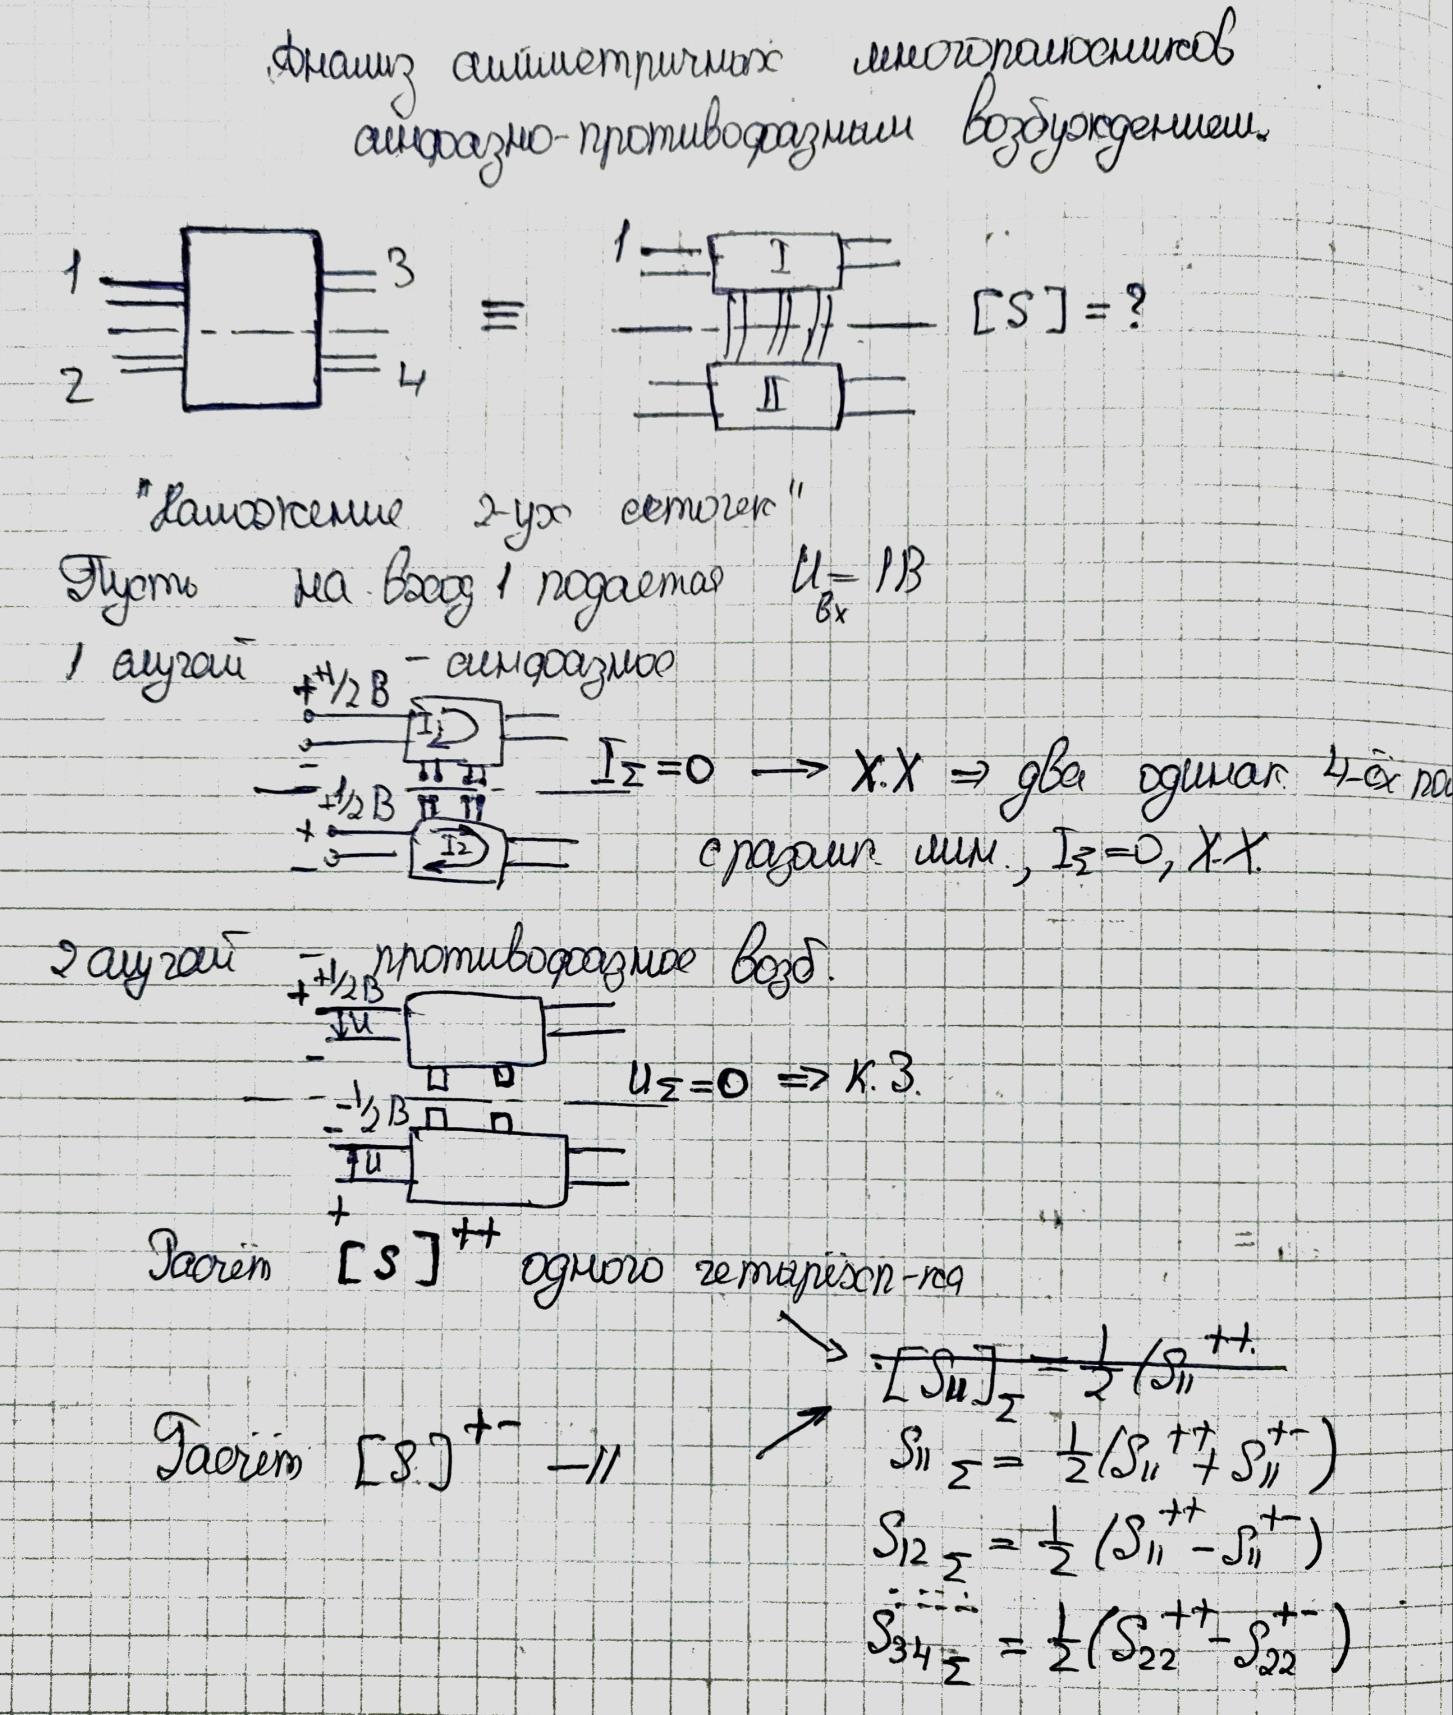 Анализ симметричных многополюсников
синфазно-противофазным возбуждением.
1 3 2 4 ≡ 1 I II [S] = ?
"Наложение 2-ух сеточек"
Пусть на вход 1 подается Uвх = 1В
1 случай - синфазное
+ +1/2 В I₁ -
IΣ = 0 → Х.Х ⇒ два одинак. 4-ёх по
+1/2 В + - I₂
с разомк. лин., IΣ = 0, Х.Х.
2 случай - противофазное возб.
+ +1/2 В ↓U -
UΣ = 0 ⇒ К.З.
-1/2 В - ↑U +
Расчёт [S]⁺⁺ одного четырёхп-ка
[S₁₁]Σ = 1/2 (S₁₁⁺⁺
Расчёт [S]⁺⁻ —//
S₁₁Σ = 1/2 (S₁₁⁺⁺ + S₁₁⁺⁻)
S₁₂Σ = 1/2 (S₁₁⁺⁺ - S₁₁⁺⁻)
S₃₄Σ = 1/2 (S₂₂⁺⁺ - S₂₂⁺⁻)